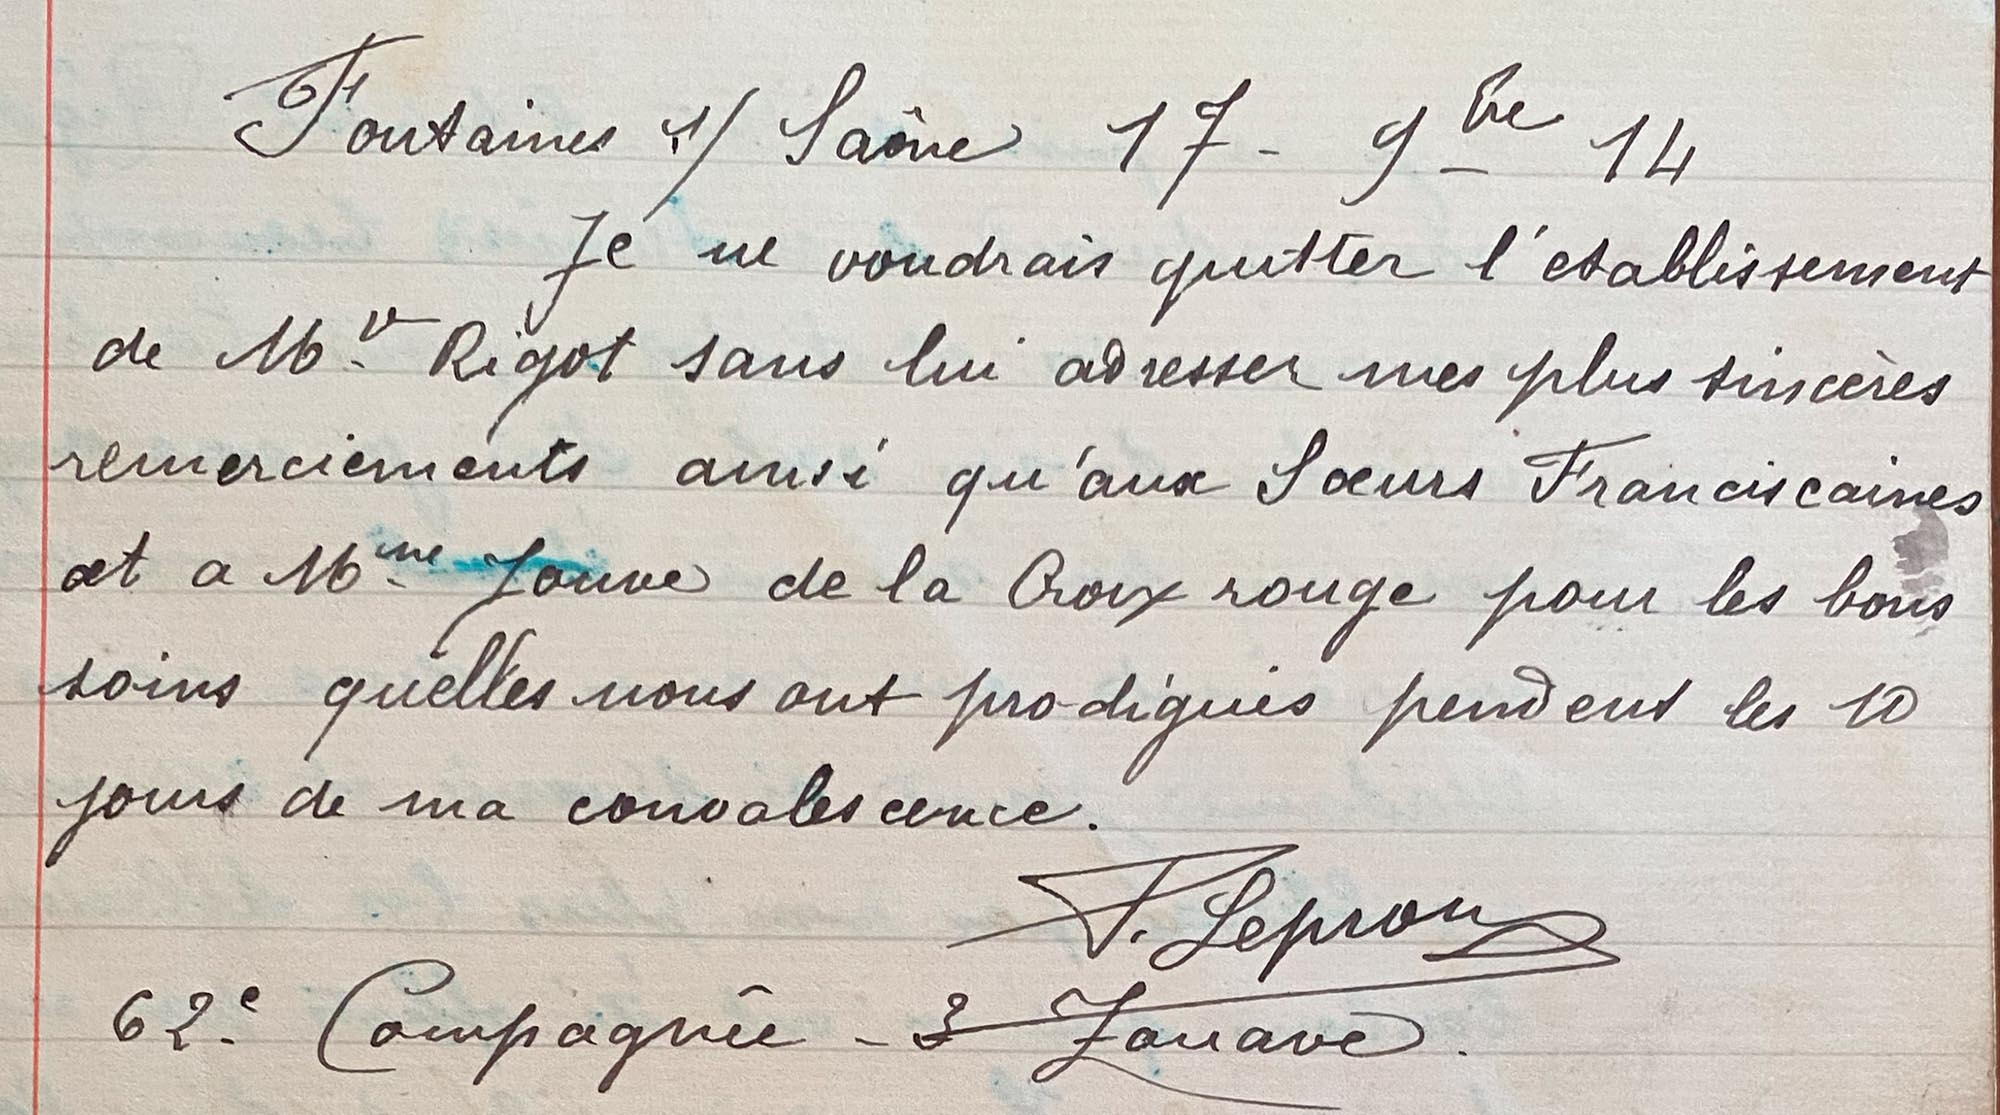 Fontaines s/ Saône 17 - 9bre 14
Je ne voudrais quitter l'etablissement
de Mr Rigot sans lui adresser mes plus sincères
remerciements ainsi qu'aux Sœurs Franciscaines
et a Mme Jouve de la Croix rouge pour les bons
soins quelles nous ont prodigués pendent les 10
jours de ma convalescence.
Lepron
62e Compagnie - 3 Zouave.